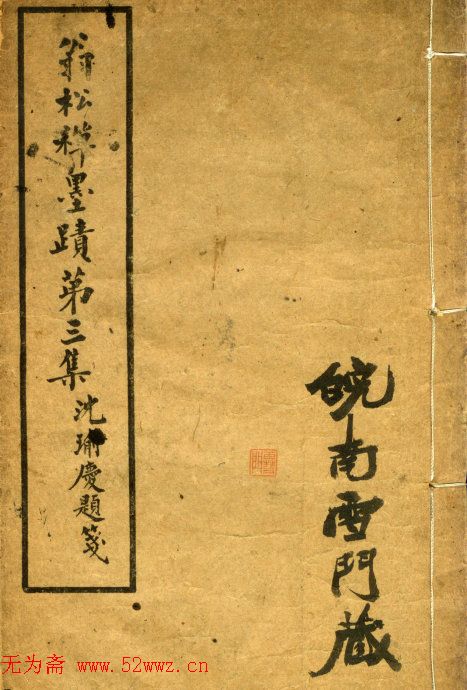 翁松禪墨蹟第三集 沈瑜慶題箋
皖南雪門藏
无为斋 www.52wwz.cn